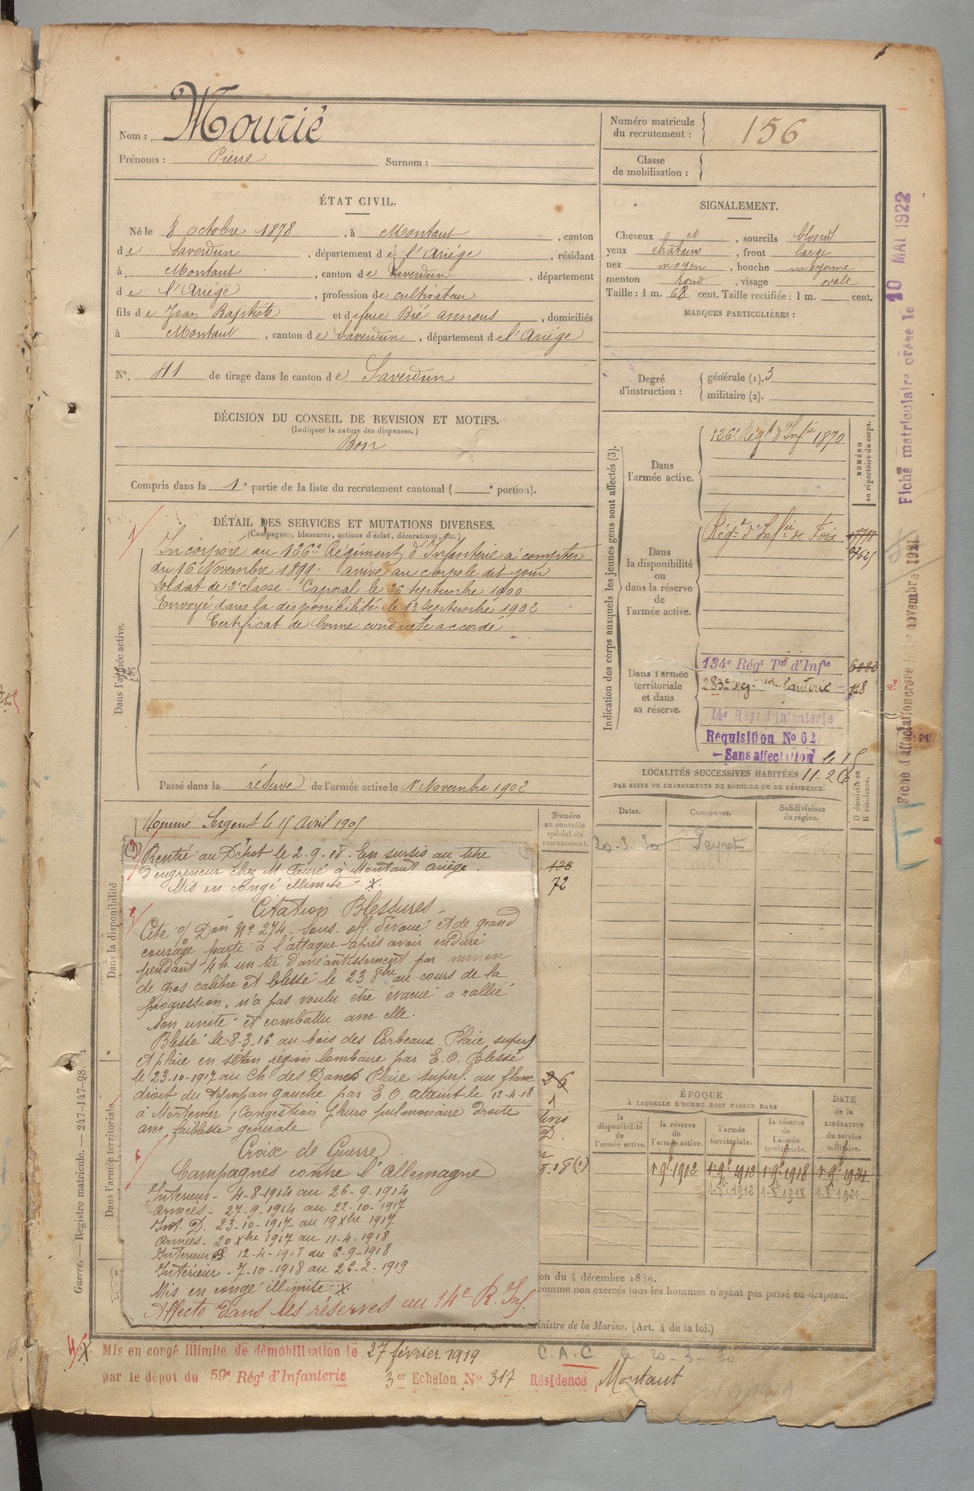 Nom : Mourié
Prénoms : Pierre Surnom :
Numéro matricule du recrutement : 156
Classe de mobilisation :
ÉTAT CIVIL.
Né le 8 octobre 1878, à Montaut, canton
de Saverdun, département de l'Ariége, résidant
à Montaut, canton de Saverdun, département
de l'Ariége, profession de cultivateur
fils de Jean Baptiste et de feue Bié, domiciliés
à Montaut, canton de Saverdun, département de l'Ariége
N° 41 de tirage dans le canton de Saverdun
DÉCISION DU CONSEIL DE REVISION ET MOTIFS.
(Indiquer la nature des dispenses.)
Bon
Compris dans la 1e partie de la liste du recrutement cantonal ( e portion).
SIGNALEMENT.
Cheveux et, sourcils blond
yeux chatains, front large
nez moyen, bouche moyenne
menton rond, visage ovale
Taille : 1 m. 68 cent. Taille rectifiée : 1 m. cent.
MARQUES PARTICULIÈRES :
Degré d'instruction : générale (1). 3
militaire (2).
DÉTAIL DES SERVICES ET MUTATIONS DIVERSES.
(Campagnes, blessures, actions d'éclat, décorations, etc.)
Dans l'armée active.
Incorporé au 126e Régiment d'Infanterie à compter
du 16 Novembre 1899. arrivé au corps le dit jour
soldat de 2e classe. Caporal le 26 septembre 1900
Envoyé dans la disponibilité le 13 Septembre 1902
Certificat de bonne conduite accordé
Passé dans la réserve de l'armée active le 1er Novembre 1902
Indication des corps auxquels les jeunes gens sont affectés (3).
Dans l'armée active.
126e Régt d'Infie 1870
NUMÉRO au répertoire du corps.
Dans la disponibilité ou dans la réserve de l'armée active.
Régt d'Infie de Foix
Dans l'armée territoriale et dans sa réserve.
134e Régt Tal d'Infie
283e
14e Régt d'Infanterie
Requisition No 62
Sans affectation le 15
11-26
LOCALITÉS SUCCESSIVES HABITÉES
PAR SUITE DE CHANGEMENTS DE DOMICILE OU DE RÉSIDENCE.
Dates. Communes. Subdivisions de région. D domicile ou R résidence.
20-3-30
Dans la disponibilité
Nommé Sergent le 15 Avril 1905
Numéro au contrôle spécial du recrutement.
72
Rentré au Dépôt le 2.9.18. En sursis au titre
d'engreneur chez M. Fauré à Montaut Ariège.
Mis en congé illimité X.
Citation Blessures
Cité o/ Don No 274. Sous-off. dévoué et de grand
courage parti à l'attaque après avoir enduré
pendant 4h un tir d'anéantissement par minen
de gros calibre et blessé le 23 8bre au cours de la
progression, n'a pas voulu être évacué a rallié
son unité et combattu avec elle.
Blessé le 8-3-16 au bois des Corbeaux Plaie superf.
et plaie en séton région lombaire par E.O. Blessé
le 23-10-1917 au Ch. des Dames Plaie superf. au flanc
droit du tympan gauche par E.O. atteint le 12-4-18
à Mortemer, congestion pleuro pulmonaire droite
avec faiblesse générale
Croix de Guerre
Campagnes contre l'Allemagne
Intérieur - 4-8-1914 au 26-9-1914
Armées - 27-9-1914 au 22-10-1917
Int. D. 23-10-1917 au 19 Xbre 1917
Armées - 20 Xbre 1917 au 11-4-1918
Intérieur 12-4-1918 au 6-9-1918
Intérieur - 7-10-1918 au 26-2-1919
Mis en congé illimité X.
Affecté dans les réserves au 14e R. Inf.
Dans l'armée territoriale.
ÉPOQUE
À LAQUELLE L'HOMME DOIT PASSER DANS
la disponibilité de l'armée active. la réserve de l'armée active. l'armée territoriale. la réserve de l'armée territoriale.
DATE de la LIBÉRATION du service militaire.
on du 4 décembre 1889.
comme non exercés tous les hommes n'ayant pas passé au drapeau.
ministre de la Marine. (Art. 4 de la loi.)
Mis en congé illimité de démobilisation le 27 février 1919
C.A.C le 20-3-30
par le dépôt du 59e Régt d'Infanterie 3er Echelon No 317 Résidence, Montaut
Guerre. — Registre matricule. — 247-147-98.
Fiche matriculaire créée le 10 MAI 1922